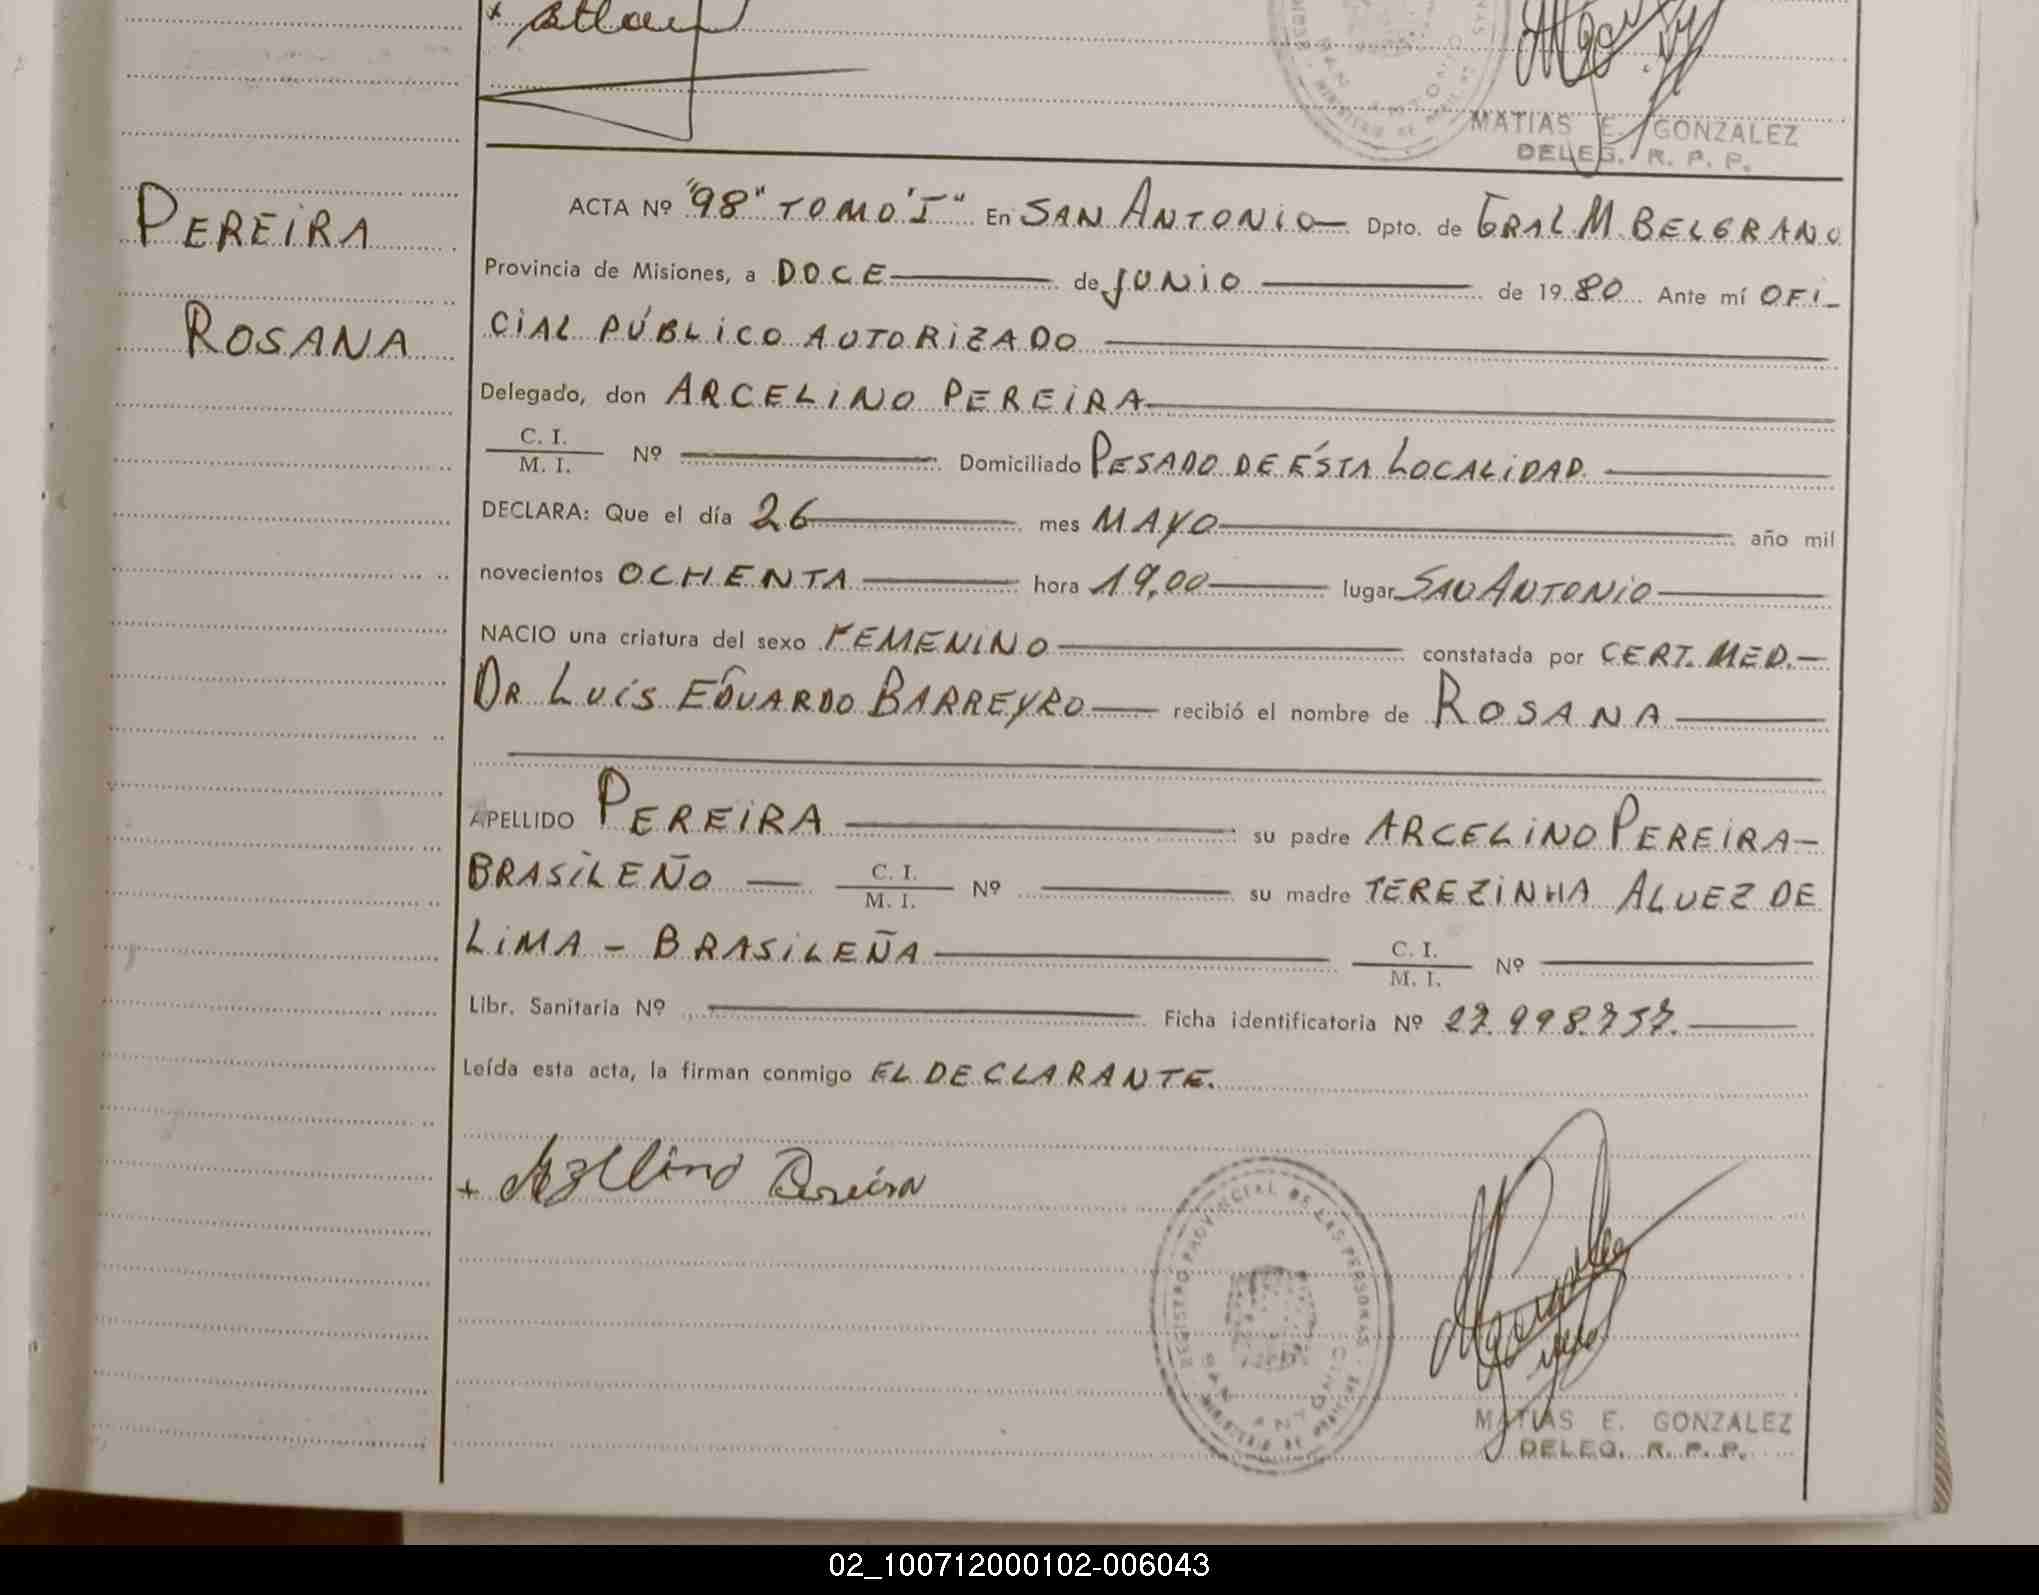 MATIAS E. GONZALEZ
DELEG. R. P. P.
PEREIRA
ROSANA
ACTA Nº "98" TOMO "I" En SAN ANTONIO Dpto. de GRAL M. BELGRANO
Provincia de Misiones, a DOCE de JUNIO de 1980 Ante mí OFI-
CIAL PÚBLICO AUTORIZADO
Delegado, don ARCELINO PEREIRA
C. I.
M. I. Nº Domiciliado PESADO DE ÉSTA LOCALIDAD.
DECLARA: Que el día 26 mes MAYO año mil
novecientos OCHENTA hora 19,00 lugar SAN ANTONIO
NACIO una criatura del sexo FEMENINO constatada por CERT. MED.-
DR LUIS EDUARDO BARREYRO recibió el nombre de ROSANA
APELLIDO PEREIRA su padre ARCELINO PEREIRA-
BRASILEÑO C. I. / M. I. Nº su madre TEREZINHA ALVEZ DE
LIMA - BRASILEÑA C. I. / M. I. Nº
Libr. Sanitaria Nº Ficha identificatoria Nº 27.998.757.
Leída esta acta, la firman conmigo EL DECLARANTE.
+ Pereira
REGISTRO PROVINCIAL DE LAS PERSONAS
SAN ANTONIO
MINISTERIO DE
MATIAS E. GONZALEZ
DELEG. R. P. P.
02_100712000102-006043